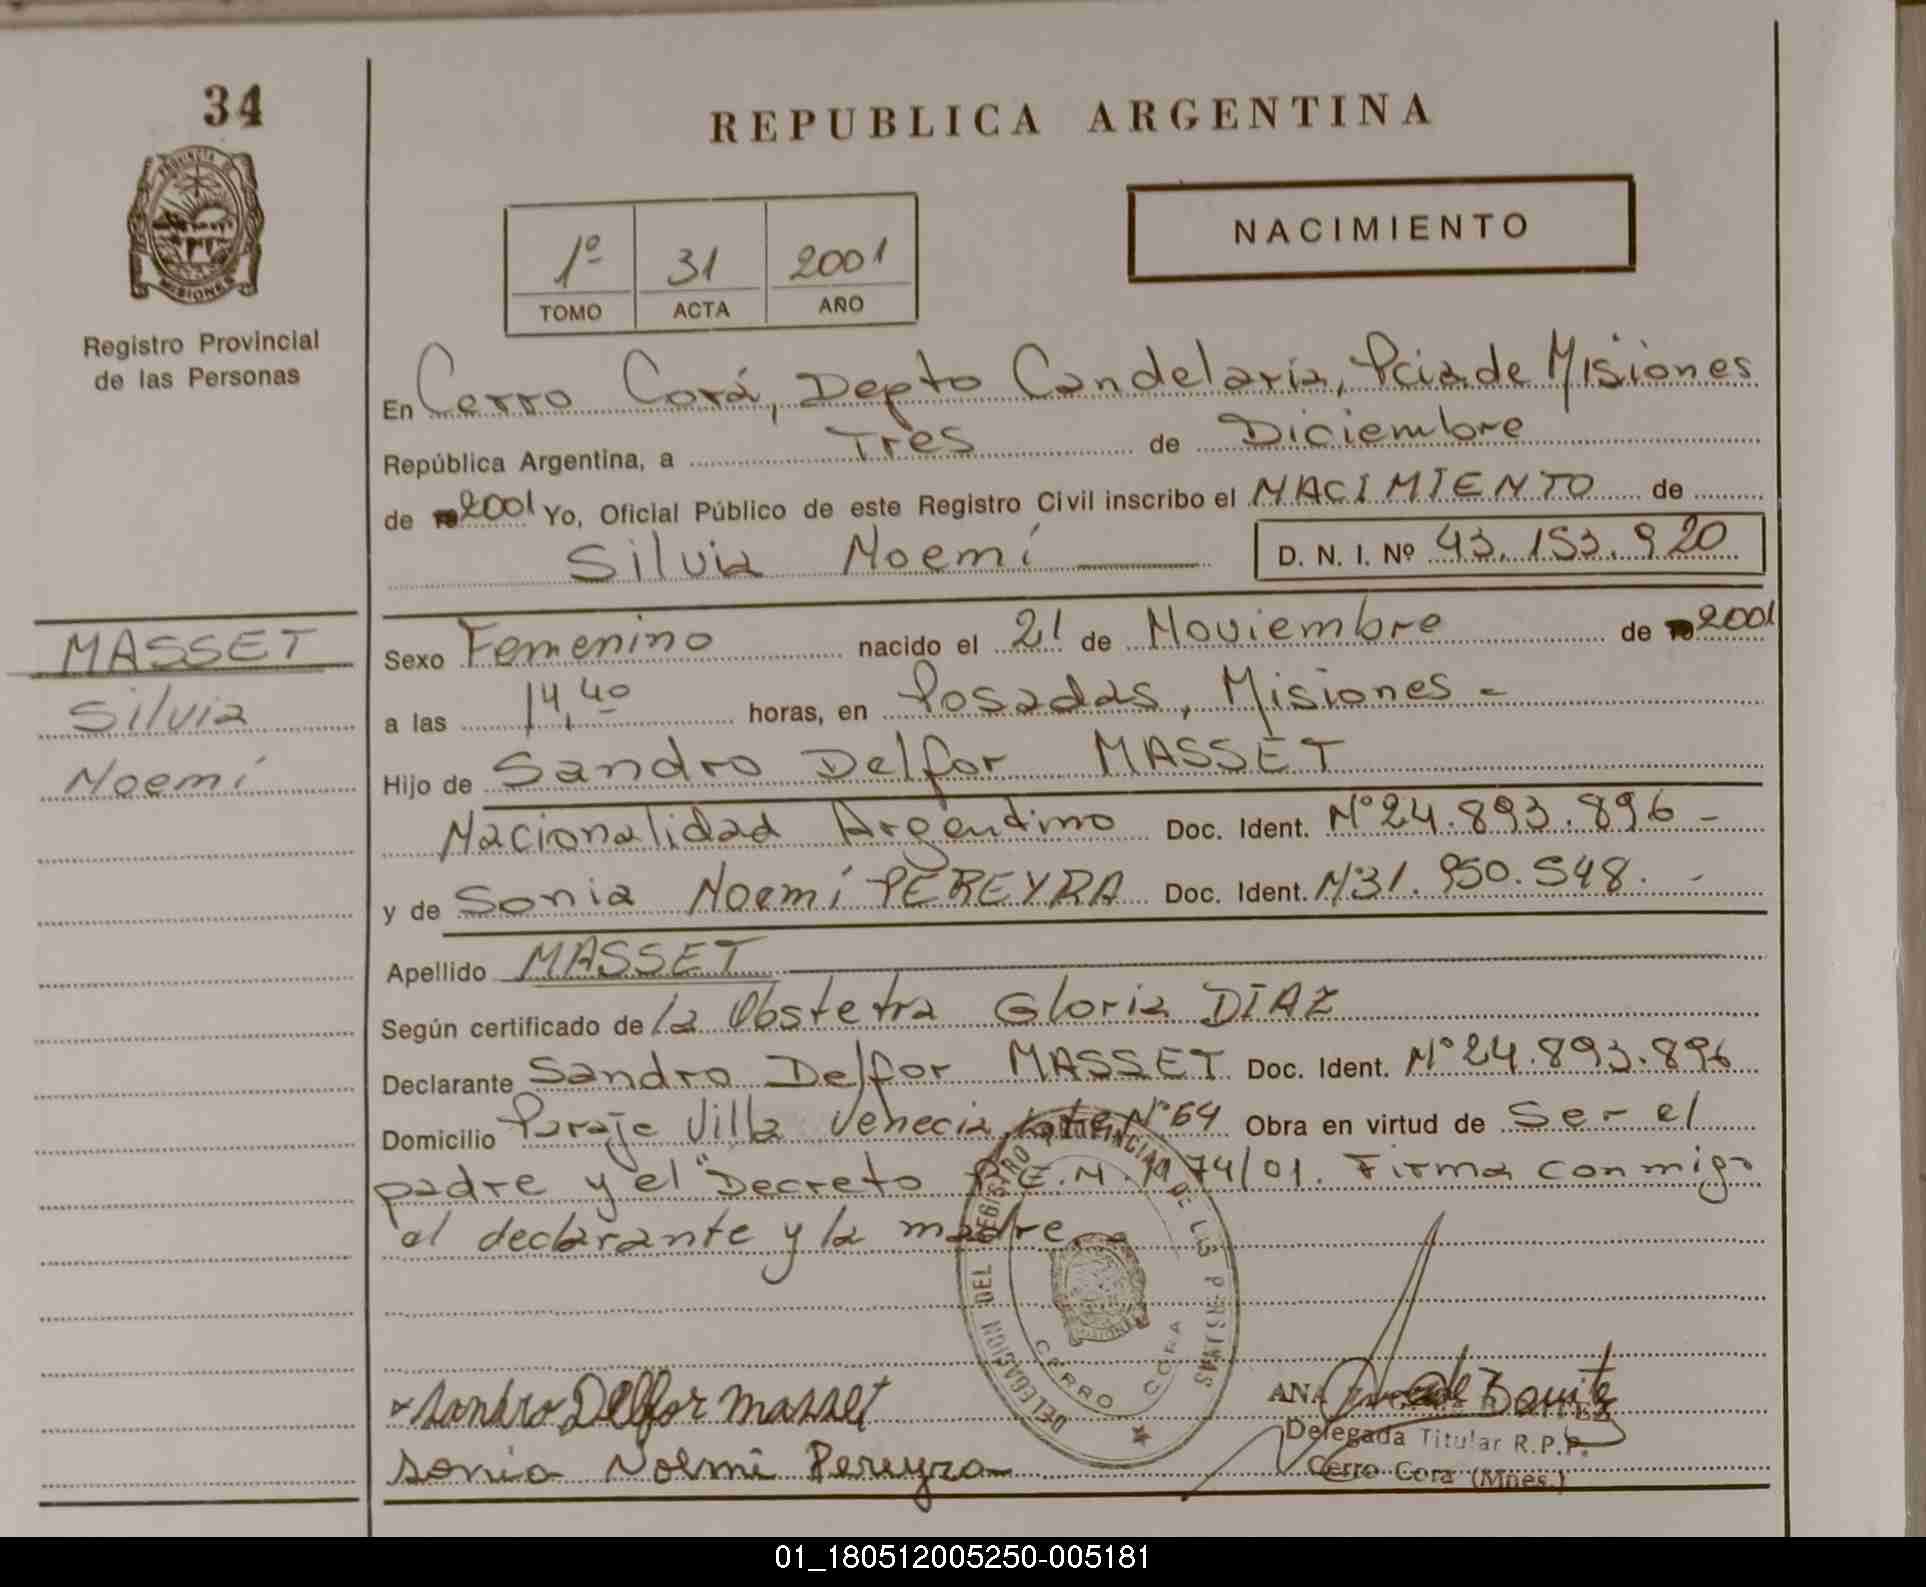 34
PROVINCIA DE
MISIONES
Registro Provincial
de las Personas
REPUBLICA ARGENTINA
1º 31 2001
TOMO ACTA AÑO
NACIMIENTO
En Cerro Corá, Depto Candelaria, Pcia de Misiones
República Argentina, a Tres de Diciembre
de 2001 Yo, Oficial Público de este Registro Civil inscribo el NACIMIENTO de
Silvia Noemí D. N. I. Nº 43.153.920
MASSET
Silvia
Noemí
Sexo Femenino nacido el 21 de Noviembre de 2001
a las 14,40 horas, en Posadas, Misiones -
Hijo de Sandro Delfor MASSET
Nacionalidad Argentino Doc. Ident. Nº 24.893.896 -
y de Sonia Noemí PEREYRA Doc. Ident. Nº 31.950.548. -
Apellido MASSET
Según certificado de la Obstetra Gloria DIAZ
Declarante Sandro Delfor MASSET Doc. Ident. Nº 24.893.896
Domicilio Paraje Villa Venecia, Lote Nº 64 Obra en virtud de Ser el
padre y el "Decreto P.E.N. 1174/01. Firma conmigo
el declarante y la madre. -
DELEGACION DEL REGISTRO PROVINCIAL DE LAS PERSONAS
CERRO CORA
Sandro Delfor Masset
Sonia Noemi Pereyra
ANA
Delegada Titular R.P.P.
Cerro Cora (Mnes.)
01_180512005250-005181